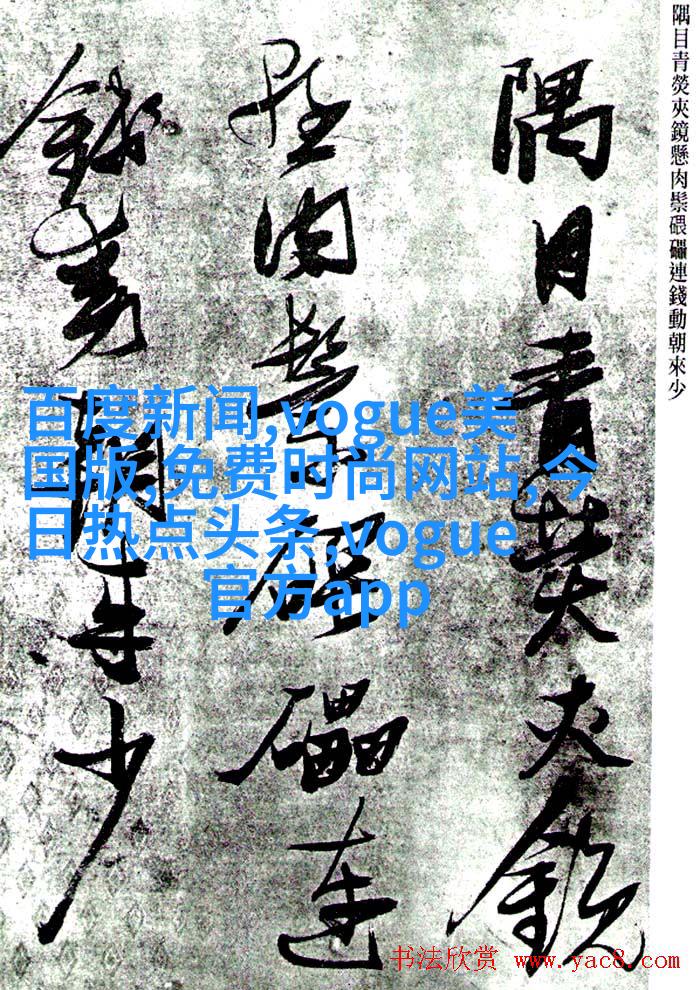 隅目青熒夾鏡懸肉鬃碨礧連錢動朝來少
隅目青熒夾鏡
懸肉鬃碨礧連
錢動朝來少
百度新闻,vogue美
国版,免费时尚网站,今
日热点头条,vogue
官方app
书法欣赏 www.yac8.com